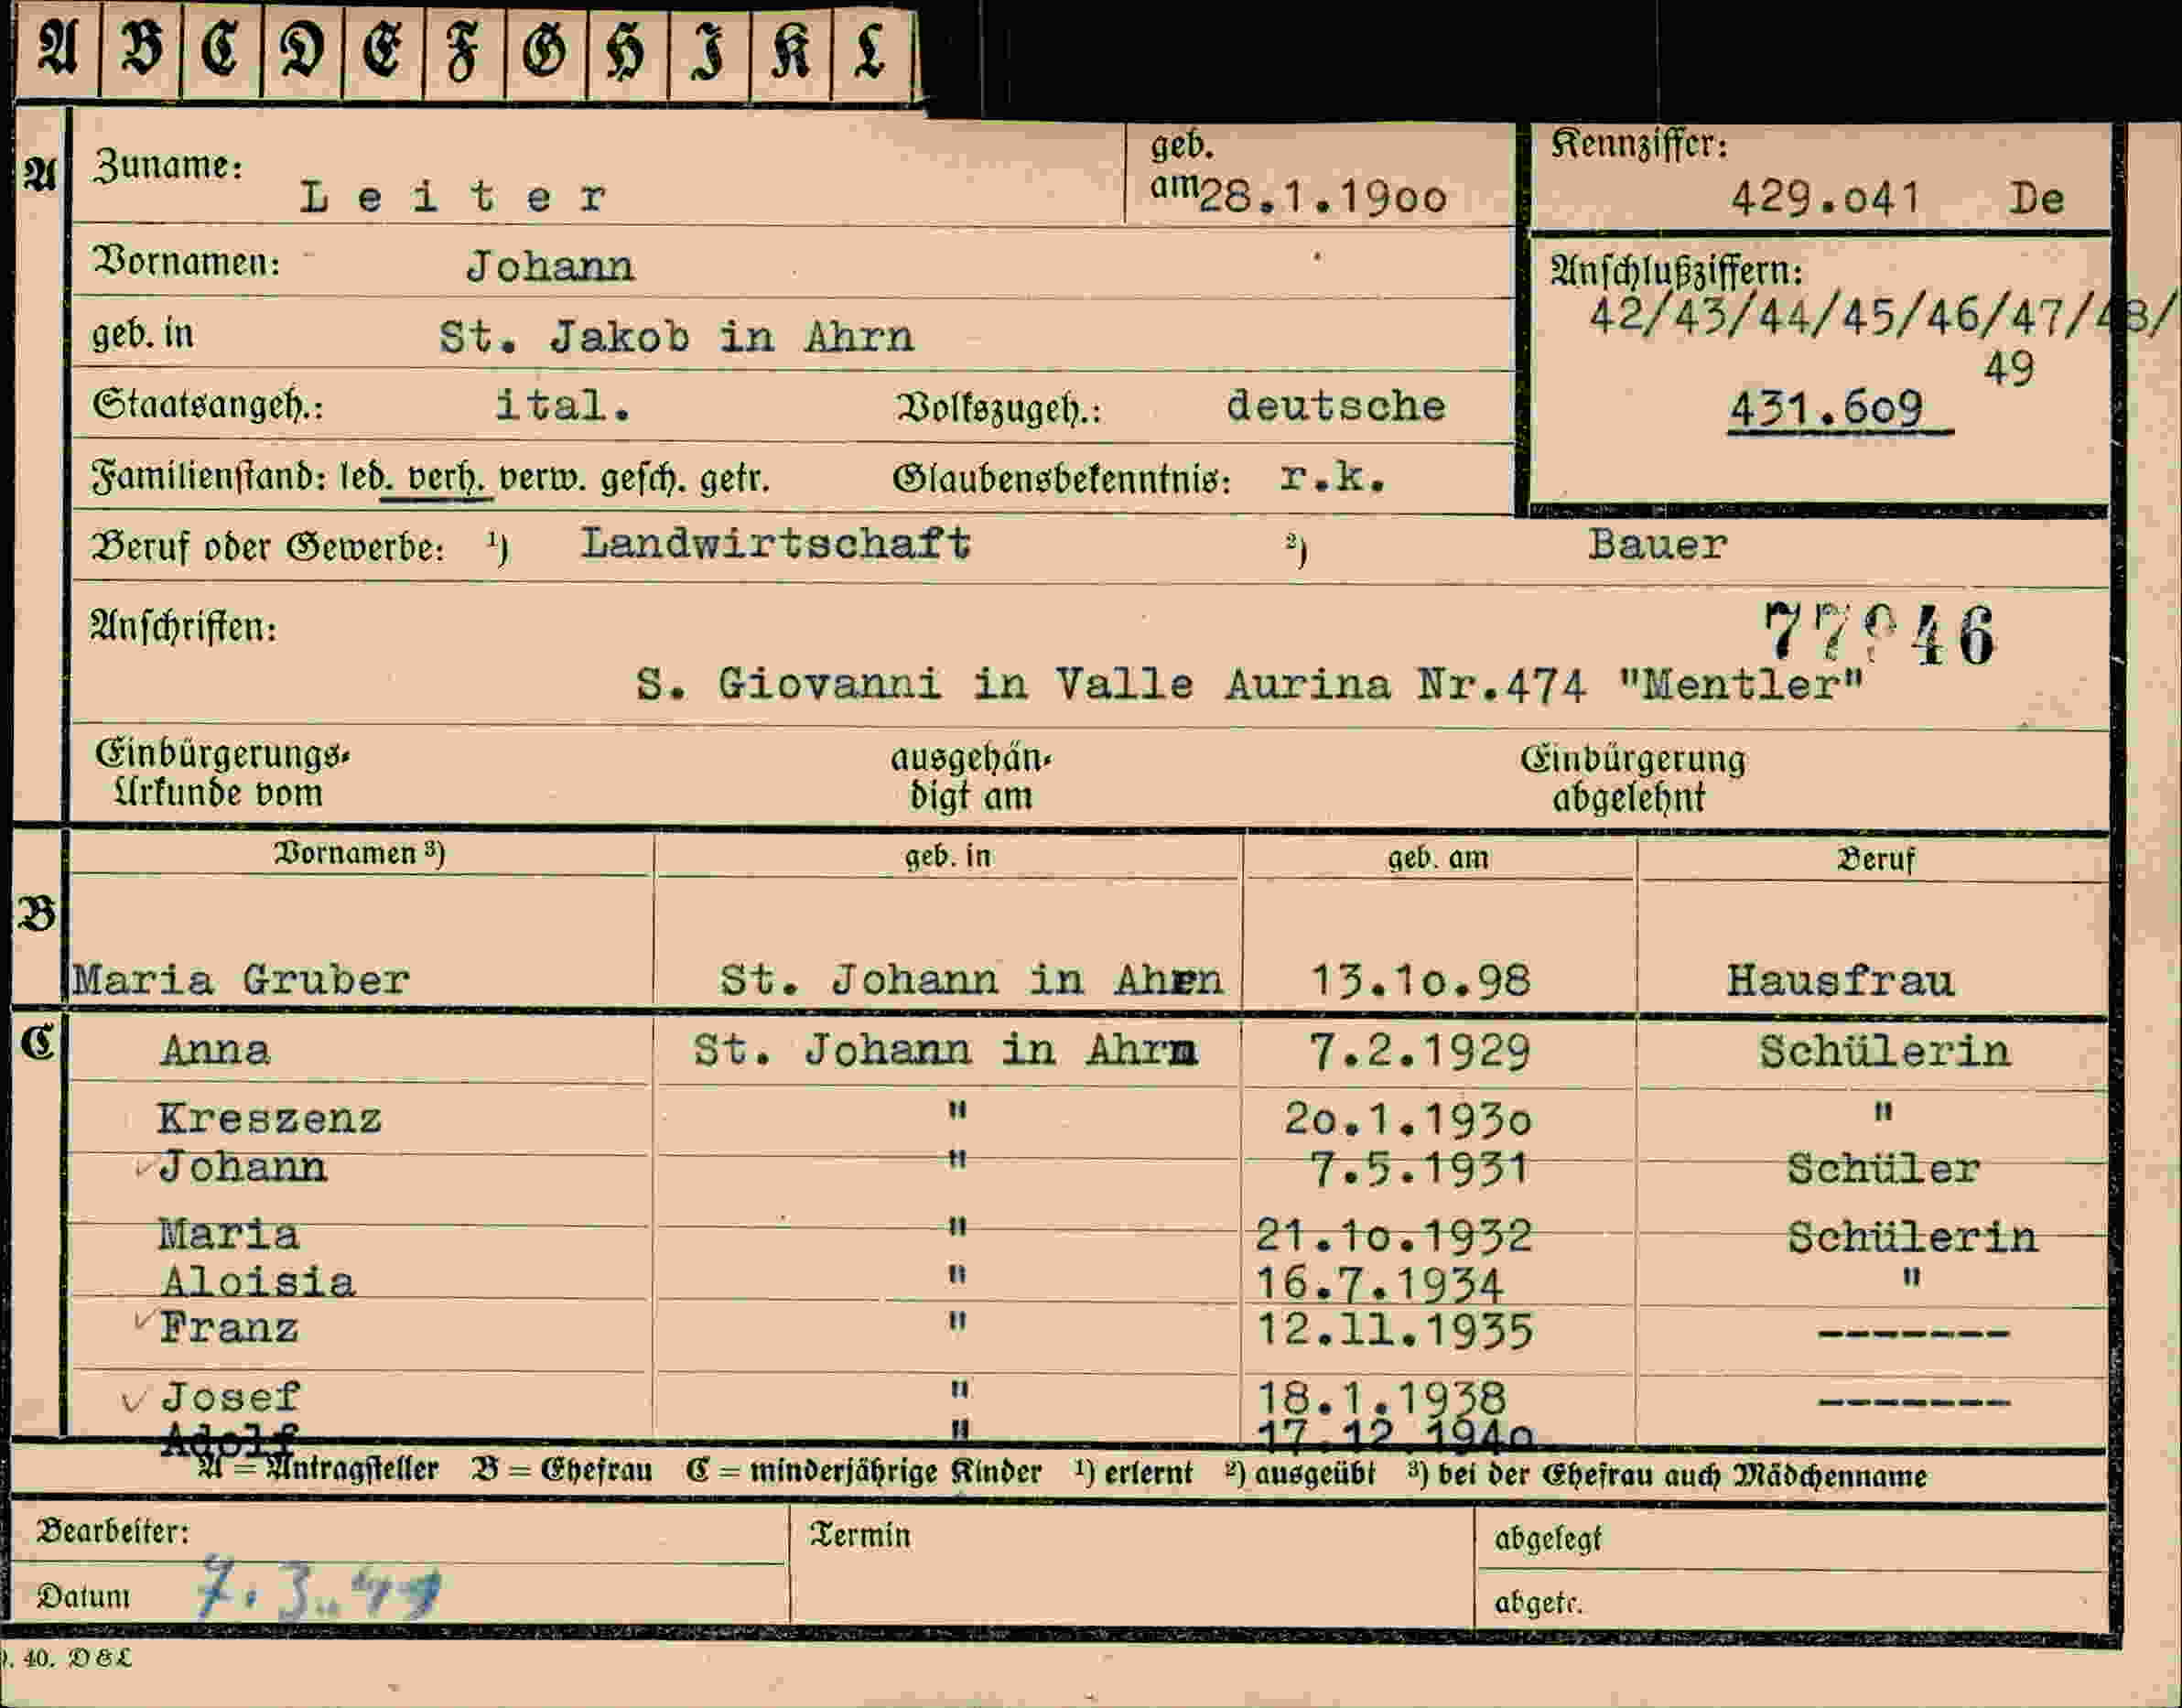 A B C D E F G H I K L
A Zuname: Leiter geb. am 28.1.1900 Kennziffer: 429.041 De
Vornamen: Johann
Anschlußziffern:
42/43/44/45/46/47/48/
geb. in St. Jakob in Ahrn
49
Staatsangeh.: ital. Volkszugeh.: deutsche 431.609
Familienstand: led. verh. verw. gesch. getr. Glaubensbekenntnis: r.k.
Beruf oder Gewerbe: 1) Landwirtschaft 2) Bauer
Anschriften:
S. Giovanni in Valle Aurina Nr.474 "Mentler"
Einbürgerungs- ausgehän- Einbürgerung
Urkunde vom digt am abgelehnt
Vornamen 3) geb. in geb. am Beruf
B
Maria Gruber St. Johann in Ahrn 13.10.98 Hausfrau
C Anna St. Johann in Ahrn 7.2.1929 Schülerin
Kreszenz " 20.1.1930 "
Johann " 7.5.1931 Schüler
Maria " 21.10.1932 Schülerin
Aloisia " 16.7.1934 "
Franz " 12.11.1935 -------
Josef " 18.1.1938 -------
Adolf " 17.12.1940
A = Antragsteller B = Ehefrau C = minderjährige Kinder 1) erlernt 2) ausgeübt 3) bei der Ehefrau auch Mädchenname
Bearbeiter: Termin abgelegt
Datum 7.3. abgetr.
40. D&L